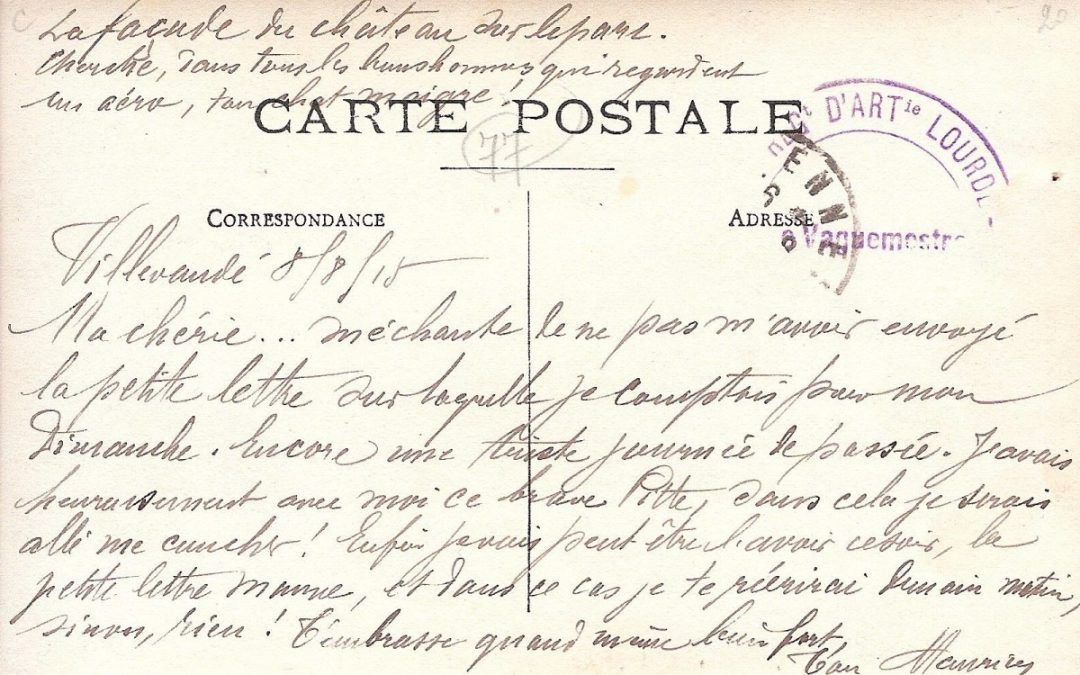 La façade du château sur le parc.
Cherche, dans tous les bonshommes qui regardent
un aéro, ton chat maigre !
CARTE POSTALE
77
D'ARTie LOURDE
Vaguemestre
CORRESPONDANCE
ADRESSE
Villevaudé 8/8/15
Ma chérie... méchante de ne pas m'avoir envoyé
la petite lettre sur laquelle je comptais pour mon
Dimanche. Encore une triste journée de passée. J'avais
heureusement avec moi ce brave Pitte, sans cela je serais
allé me coucher ! Enfin je vais peut être l'avoir ce soir, la
petite lettre mauve, et dans ce cas je te récrirai demain matin,
sinon, rien ! T'embrasse quand même bien fort,
Ton Maurice